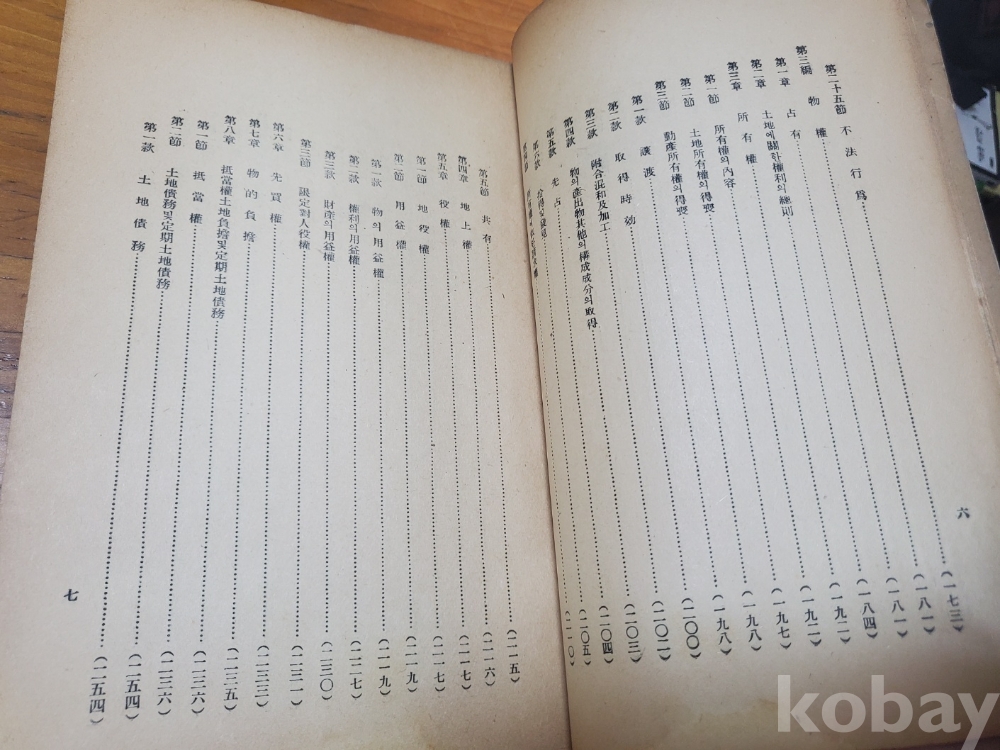 第二十五節 不法行爲……(一七三)
第三編 物權……(一八一)
第一章 占有……(一八一)
第二章 土地에關한權利의總則……(一八四)
第三章 所有權……(一九二)
第一節 所有權의內容……(一九二)
第二節 土地所有權의得喪……(一九七)
第三節 動產所有權의得喪……(一九八)
第一款 讓渡……(一九八)
第二款 取得時効……(二〇〇)
第三款 附合混和及加工……(二〇二)
第四款 物의產出物其他의構成成分의取得……(二〇三)
第五款 先占……(二〇四)
第六款……(二〇五)
(二一〇)
六
第五節 共有……(二一五)
第四章 地上權……(二一六)
第五章 役權……(二一七)
第一節 地役權……(二一七)
第二節 用益權……(二一九)
第一款 物의用益權……(二一九)
第二款 權利의用益權……(二二七)
第三款 財產의用益權……(二三〇)
第三節 限定對人役權……(二三一)
第六章 先買權……(二三三)
第七章 物的負擔……(二三五)
第八章 抵當權土地負擔및定期土地債務……(二三六)
第一節 抵當權……(二三六)
第二節 土地債務및定期土地債務……(二五四)
第一款 土地債務……(二五四)
七
kobay